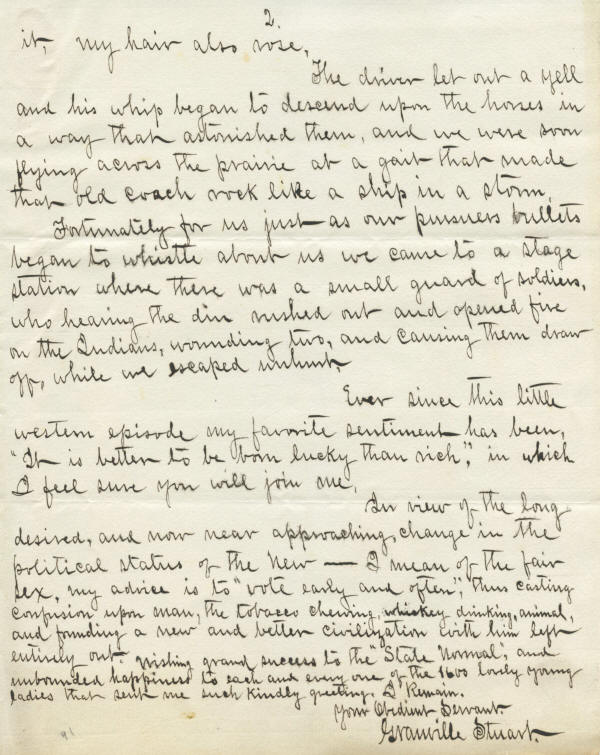 2.
it, my hair also rose.
The driver let out a yell
and his whip began to descend upon the horses in
a way that astonished them, and we were soon
flying across the prairie at a gait that made
that old coach rock like a ship in a storm.
Fortunately for us just as our pursuers bullets
began to whistle about us we came to a stage
station where there was a small guard of soldiers,
who hearing the din rushed out and opened fire
on the Indians, wounding two, and causing them draw
off, while we escaped unhurt.
Ever since this little
western episode my favorite sentiment has been,
"It is better to be born lucky than rich", in which
I feel sure you will join me.
In view of the long
desired, and now near approaching, change in the
political status of the New — I mean of the fair
sex, my advice is to "vote early and often", thus casting
confusion upon man, the tobacco chewing, whiskey drinking, animal,
and founding a new and better civilization with him left
entirely out. Wishing grand success to the "State Normal", and
unbounded happiness to each and every one of the 1600 lovely young
ladies that sent me such kindly greeting. I Remain.
Your Obedient Servant
Granville Stuart.
91